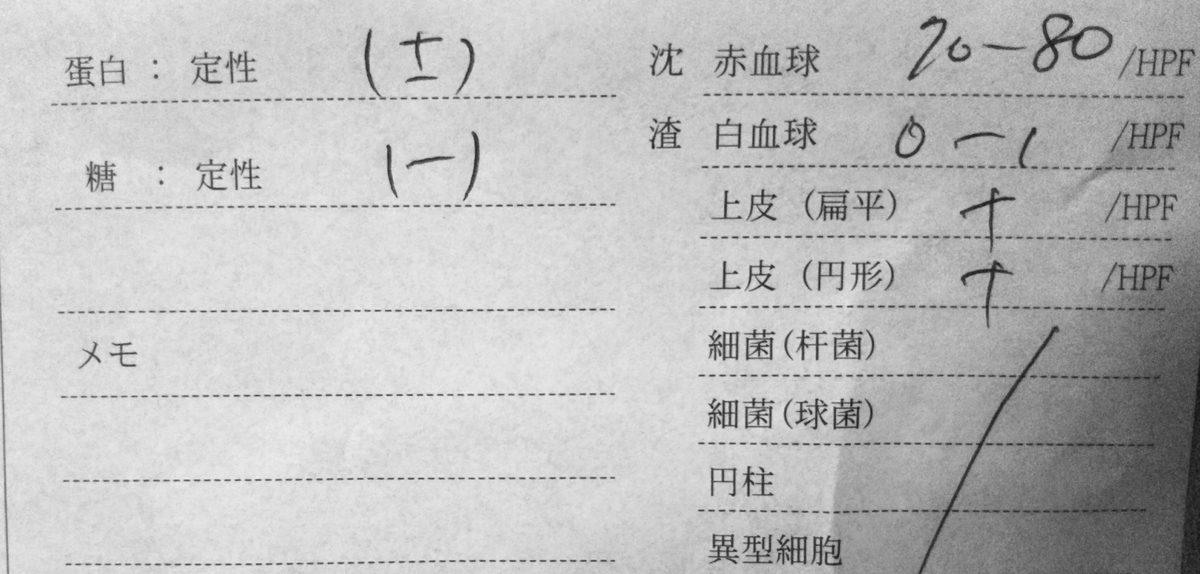 蛋白 : 定性 (±)
糖 : 定性 (-)
メモ
沈渣
赤血球 70-80 /HPF
白血球 0-1 /HPF
上皮 (扁平) + /HPF
上皮 (円形) + /HPF
細菌(杆菌)
細菌(球菌)
円柱
異型細胞